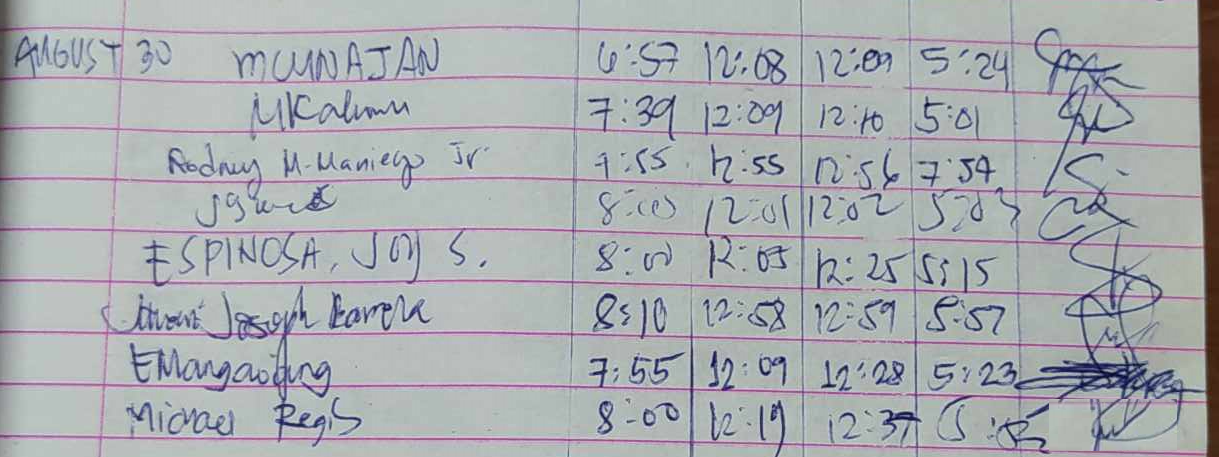 AUGUST 30 MCUNAJAN 6:57 12:08 12:09 5:24
MKalimu 7:39 12:09 12:10 5:01
Rodney M. Maniego Jr. 7:55 12:55 12:56 7:54
8:00 12:01 12:02 5:03
ESPINOSA, JOY S. 8:00 12:05 12:25 5:15
Joseph 8:10 12:58 12:59 5:57
EMangaoang 7:55 12:09 12:28 5:23
Michael Regis 8:00 12:19 12:37